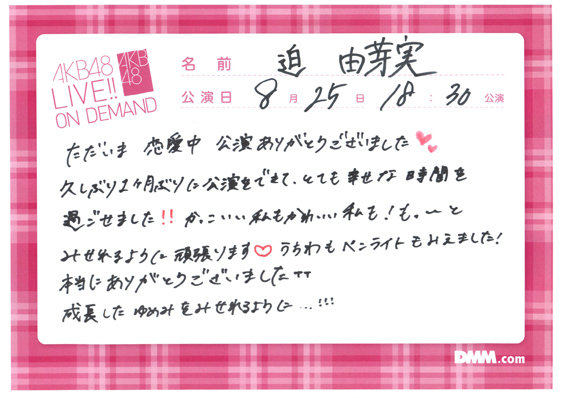 AKB48
LIVE!!
ON DEMAND
AKB
48
名前 迫 由芽実
公演日 8月25日 18:30 公演
ただいま 恋愛中 公演ありがとうございました
久しぶり1ヶ月ぶりに公演をできて、とても幸せな時間を
過ごせました!! かっこいい私もかわいい私も!もっーと
みせれるように頑張ります♡ うちわもペンライトもみえました!
本当にありがとうございましたTT
成長したゆめみをみせれるように…!!!
DMM.com